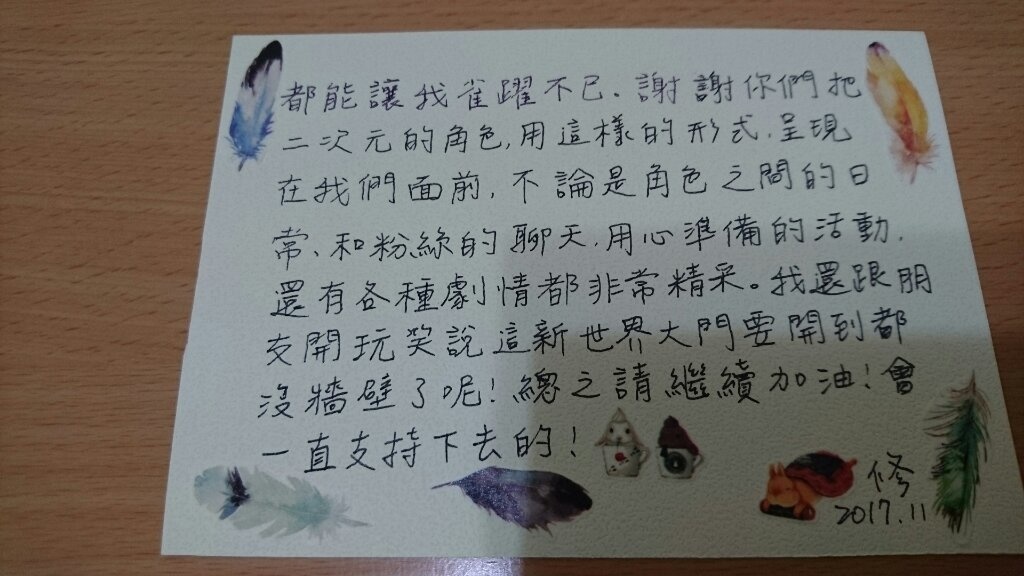 都能讓我雀躍不已。謝謝你們把
二次元的角色,用這樣的形式,呈現
在我們面前,不論是角色之間的日
常、和粉絲的聊天,用心準備的活動,
還有各種劇情都非常精采。我還跟朋
友開玩笑說這新世界大門要開到都
沒牆壁了呢!總之請繼續加油!會
一直支持下去的!
修
2017.11